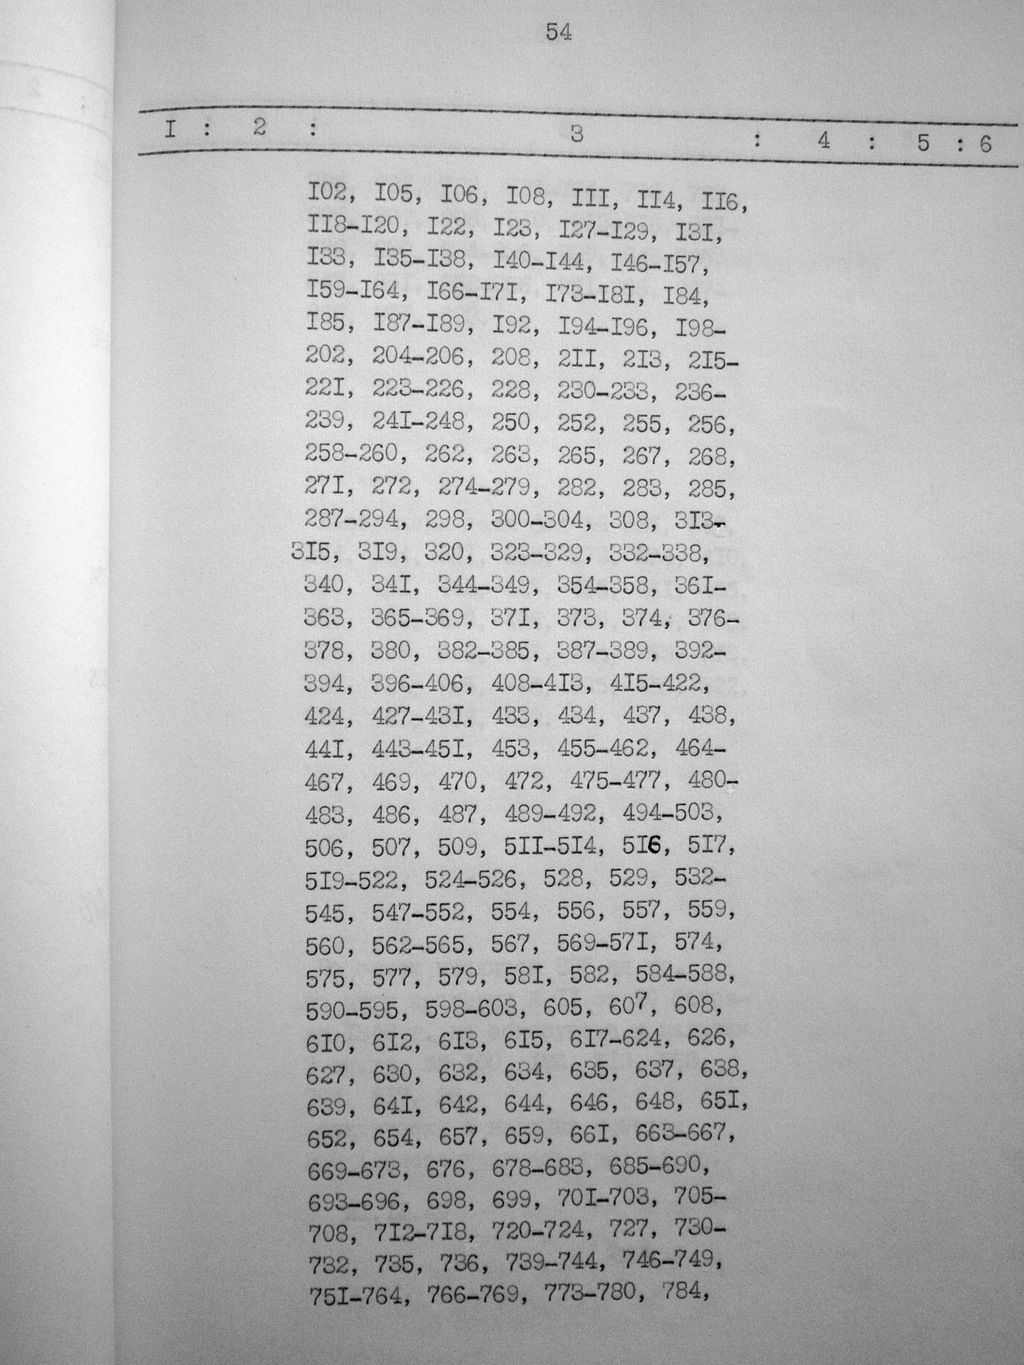 54
I : 2 : 3 : 4 : 5 : 6
I02, I05, I06, I08, III, II4, II6,
II8-I20, I22, I23, I27-I29, I3I,
I33, I35-I38, I40-I44, I46-I57,
I59-I64, I66-I7I, I73-I8I, I84,
I85, I87-I89, I92, I94-I96, I98-
202, 204-206, 208, 2II, 2I3, 2I5-
22I, 223-226, 228, 230-233, 236-
239, 24I-248, 250, 252, 255, 256,
258-260, 262, 263, 265, 267, 268,
27I, 272, 274-279, 282, 283, 285,
287-294, 298, 300-304, 308, 3I3-
3I5, 3I9, 320, 323-329, 332-338,
340, 34I, 344-349, 354-358, 36I-
363, 365-369, 37I, 373, 374, 376-
378, 380, 382-385, 387-389, 392-
394, 396-406, 408-4I3, 4I5-422,
424, 427-43I, 433, 434, 437, 438,
44I, 443-45I, 453, 455-462, 464-
467, 469, 470, 472, 475-477, 480-
483, 486, 487, 489-492, 494-503,
506, 507, 509, 5II-5I4, 5I6, 5I7,
5I9-522, 524-526, 528, 529, 532-
545, 547-552, 554, 556, 557, 559,
560, 562-565, 567, 569-57I, 574,
575, 577, 579, 58I, 582, 584-588,
590-595, 598-603, 605, 607, 608,
6I0, 6I2, 6I3, 6I5, 6I7-624, 626,
627, 630, 632, 634, 635, 637, 638,
639, 64I, 642, 644, 646, 648, 65I,
652, 654, 657, 659, 66I, 663-667,
669-673, 676, 678-683, 685-690,
693-696, 698, 699, 70I-703, 705-
708, 7I2-7I8, 720-724, 727, 730-
732, 735, 736, 739-744, 746-749,
75I-764, 766-769, 773-780, 784,